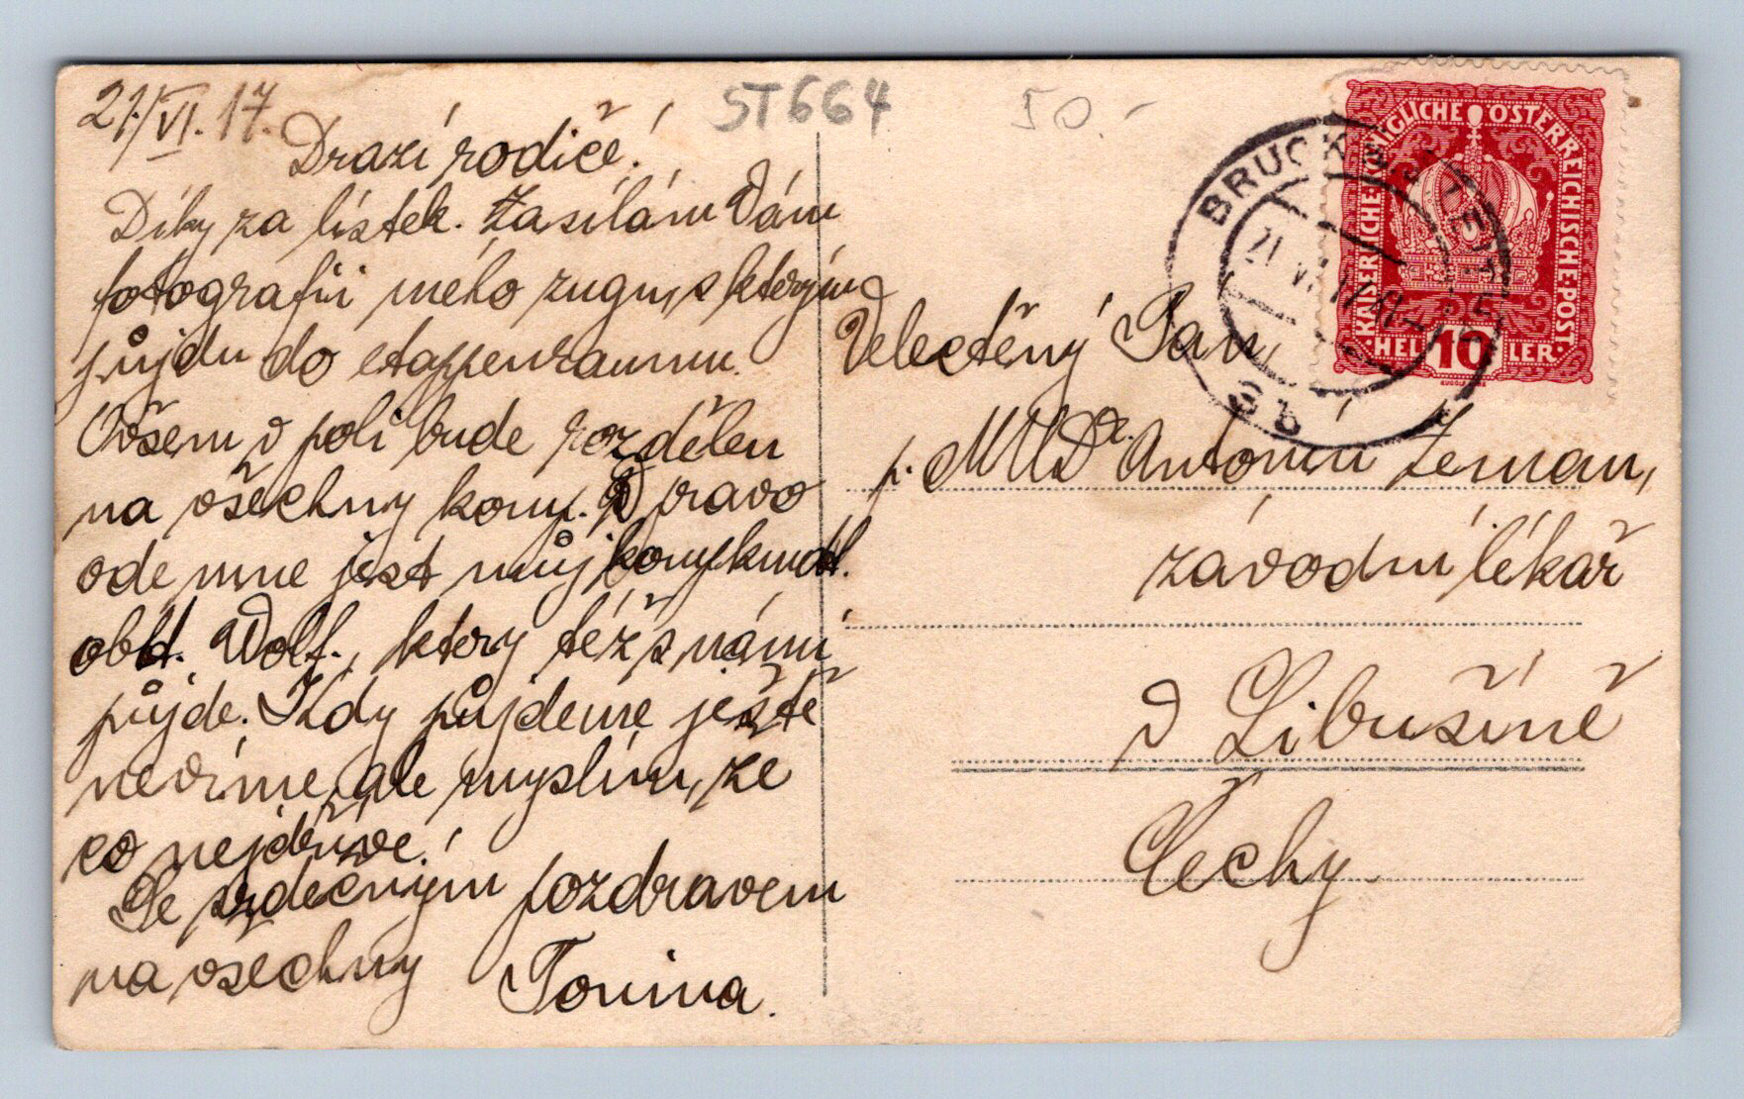 21./VI. 17.
ST664
50.-
Drazí rodiče!
Díky za lístek. Zasílám Vám
fotografii mého zugu, s kterým
půjdu do etappenraumu.
Ovšem v poli bude rozdělen
na všechny komp. V pravo
ode mne jest můj kompkmdt.
obltt. Wolf., ktery též s námi
půjde. Kdy půjdeme ještě
nevíme, ale myslím, že
co nejdříve!
Se srdečným pozdravem
na všechny Tonina.
KAISERLICHE·KÖNIGLICHE ÖSTERREICHISCHE·POST·
HEL 10 LER
BRUCK
21 VI 17
6b
Velectěný Pan,
p. MUDr. Antonín Zeman,
závodní lékař
v Libušíně
Čechy.